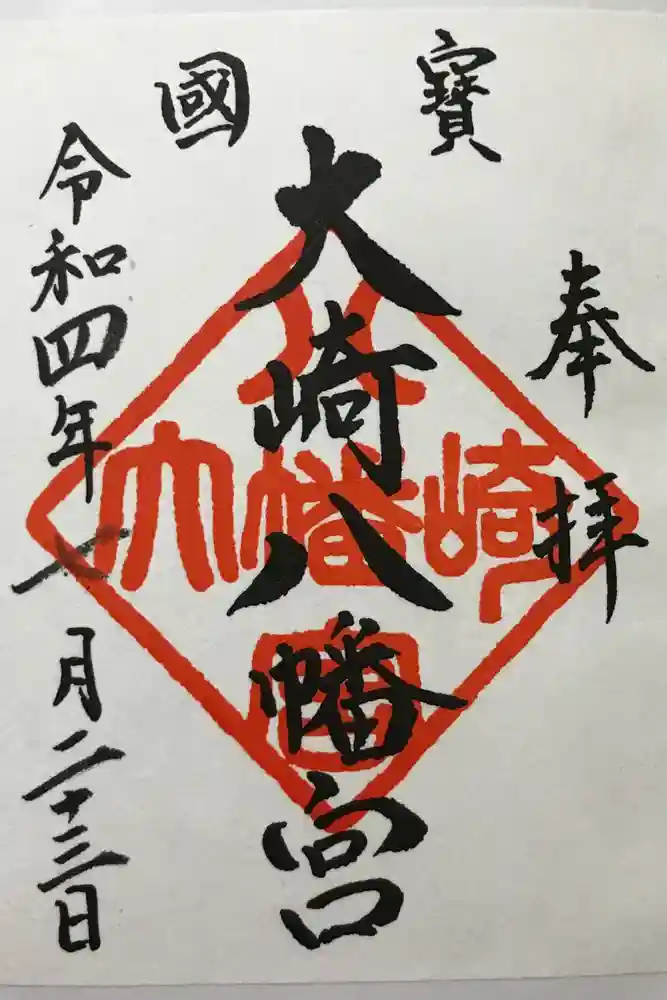 奉拝
寶國
大崎八幡宮
令和四年七月二十三日
大崎八幡宮